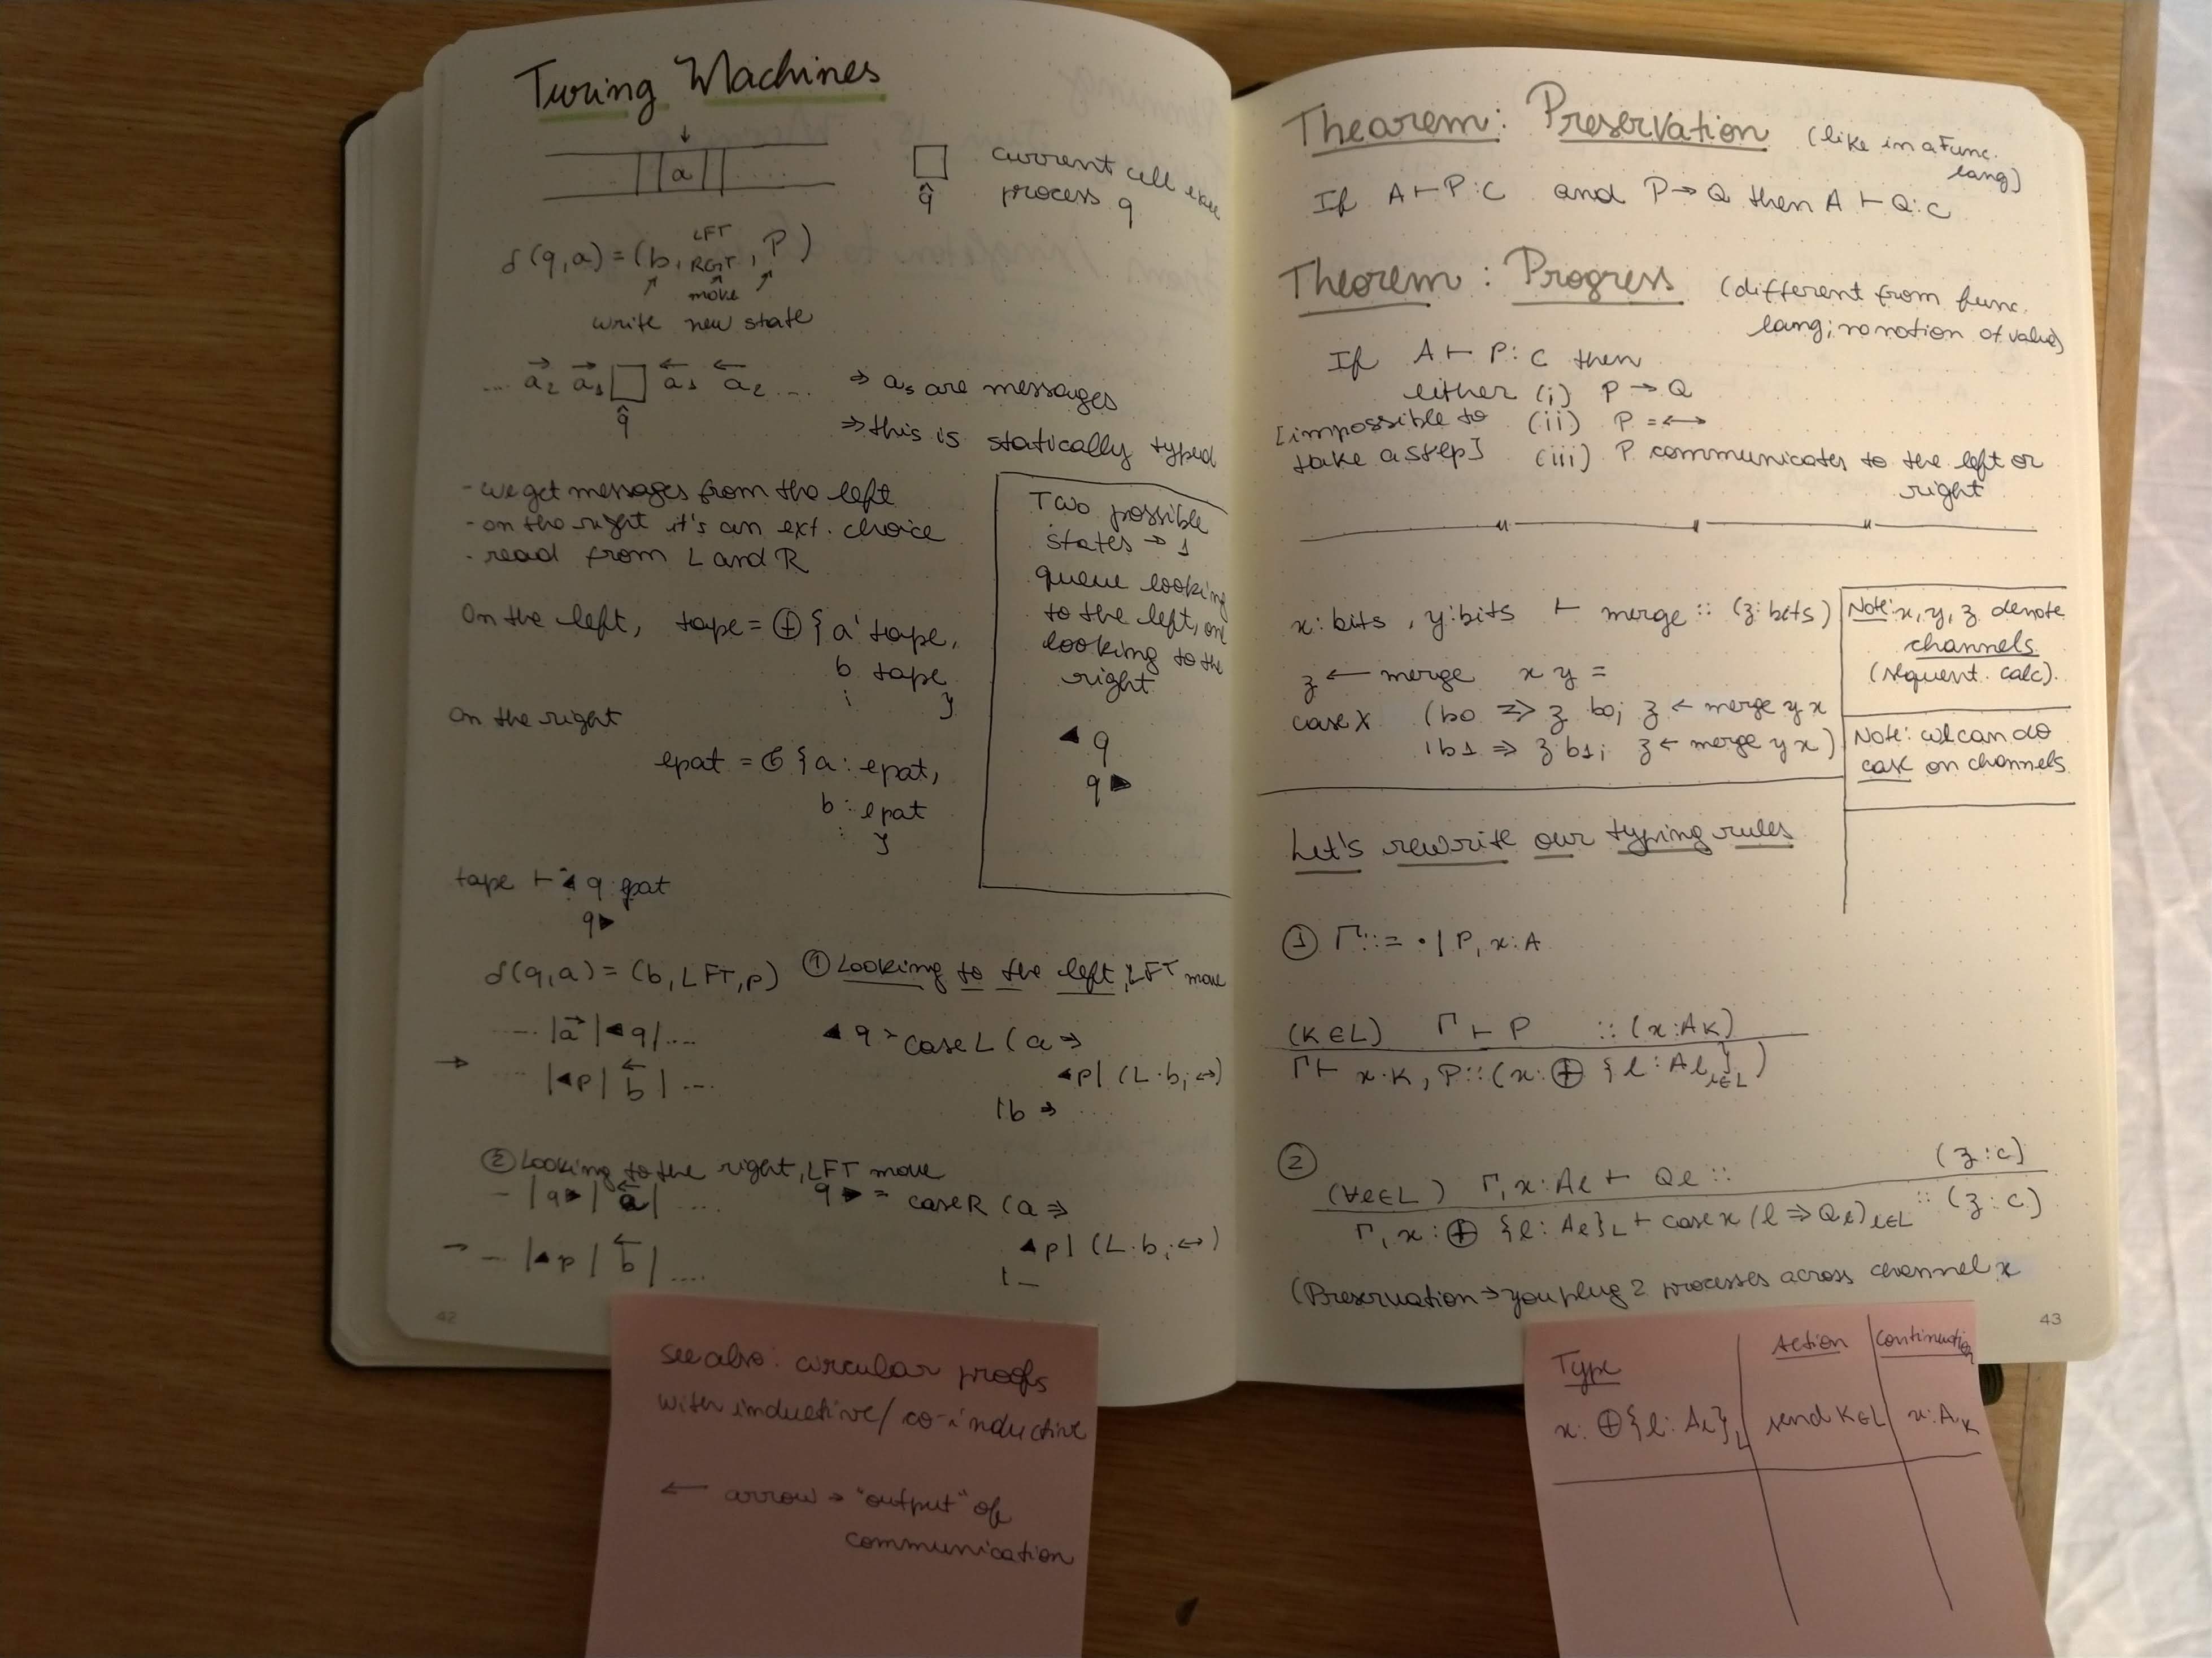 Turing Machines
a
current cell exe
process q
q̂
δ(q,a) = (b, RGT, P)
LFT
move
write new state
.... a₂ a₁ □ a₁ a₂ ....
q̂
⇒ as are messages
⇒ this is statically typed
- we get messages from the left
- on the right it's an ext. choice
- read from L and R
On the left, tape = ⊕{a: tape,
b tape
}
on the right
epat = & {a: epat,
b: epat
}
Two possible
states → 1
queue looking
to the left, one
looking to the
right
◂q
q▸
tape ⊢ ◂q : epat
q▸
δ(q,a) = (b, LFT, p) ① Looking to the left, LFT move
..... |a⃗|◂q|....
◂q = case L (a ⇒ ◂p | (L.b; ↔)
→ .... |◂p| b⃖ | ....
| b ⇒ ...
② Looking to the right, LFT move
... |q▸| a⃖ | ....
q▸ = case R (a ⇒ ◂p | (L.b; ↔)
→ ... |◂p| b⃖ | ....
| ...
42
see also: circular proofs
with inductive/co-inductive
← arrow → "output" of
communication
Theorem: Preservation (like in a func.
lang)
If A ⊢ P:C and P → Q then A ⊢ Q:C
Theorem: Progress (different from func.
lang; no notion of value)
If A ⊢ P:C then
either (i) P → Q
[impossible to (ii) P = ↔
take a step] (iii) P communicates to the left or
right
x:bits, y:bits ⊢ merge :: (z:bits)
z ← merge x y =
case x (b0 ⇒ z.b0; z ← merge y x
| b1 ⇒ z.b1; z ← merge y x)
Note: x,y,z denote
channels
(sequent calc).
Note: we can do
case on channels
Let's rewrite our typing rules
① Γ ::= • | Γ, x:A
(K∈L) Γ ⊢ P :: (x:A_K)
Γ ⊢ x.K, P :: (x: ⊕ {l: A_l}_{l∈L})
② (∀l∈L) Γ, x:A_l ⊢ Q_l :: (z:C)
Γ, x: ⊕ {l: A_l}_L ⊢ case x (l ⇒ Q_l)_{l∈L} :: (z:C)
(Preservation → you plug 2 processes across channel x
43
Type | Action | Continuation
x: ⊕{l: A_l}_L | send K∈L | x:A_K